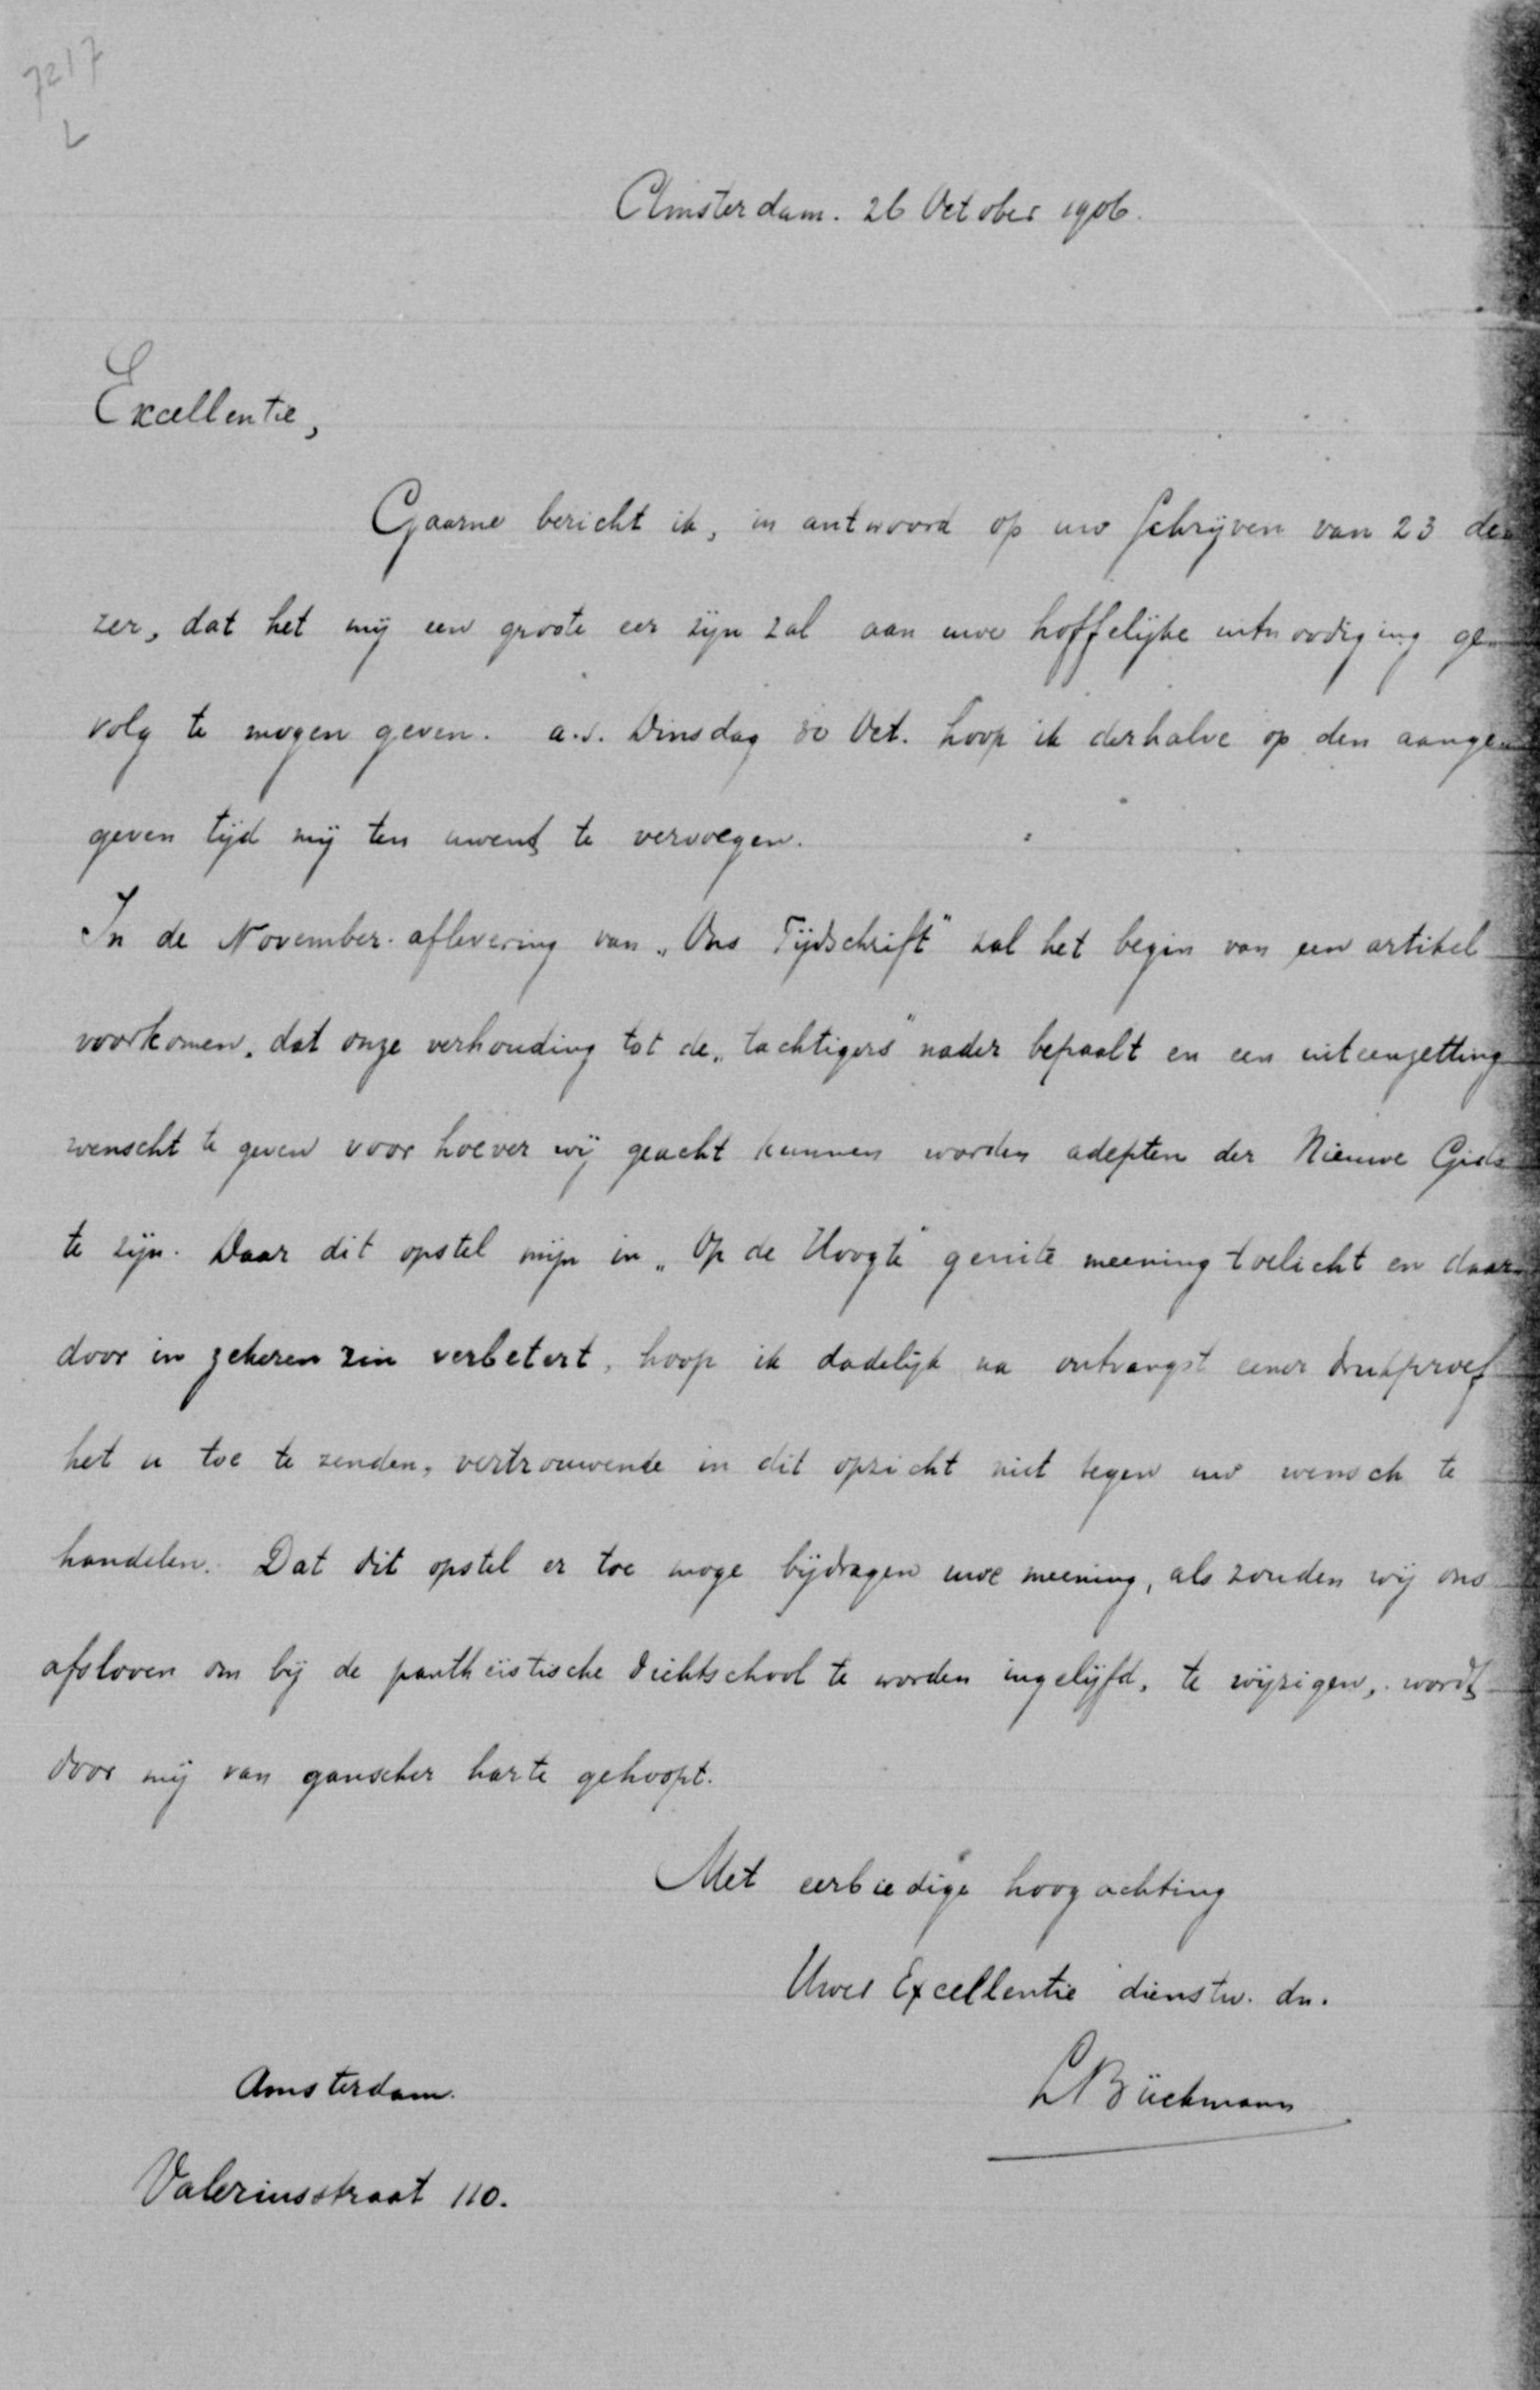 7217
L
Amsterdam. 26 October 1906.
Excellentie,
Gaarne bericht ik, in antwoord op uw schrijven van 23 de-
zer, dat het mij een groote eer zijn zal aan uwe hoffelijke uitnoodiging ge-
volg te mogen geven. a.s. Dinsdag 30 Oct. hoop ik derhalve op den aange-
geven tijd mij ten uwent te vervoegen.
In de November-aflevering van „Ons Tijdschrift" zal het begin van een artikel
voorkomen, dat onze verhouding tot de „tachtigers" nader bepaalt en een uiteenzetting
wenscht te geven voor hoever wij geacht kunnen worden adepten der Nieuwe Gids
te zijn. Daar dit opstel mijn in „Op de Hoogte" geuite meening toelicht en daar-
door in zekeren zin verbetert, hoop ik dadelijk na ontvangst eener drukproef
het u toe te zenden, vertrouwende in dit opzicht niet tegen uw wensch te
handelen. Dat dit opstel er toe moge bijdragen uwe meening, als zouden wij ons
afsloven om bij de pantheïstische dichtschool te worden ingelijfd, te wijzigen, wordt
door mij van ganscher harte gehoopt.
Met eerbiedige hoogachting
Uwer Excellentie dienstw. dn.
L Bückmann
Amsterdam.
Valeriusstraat 110.